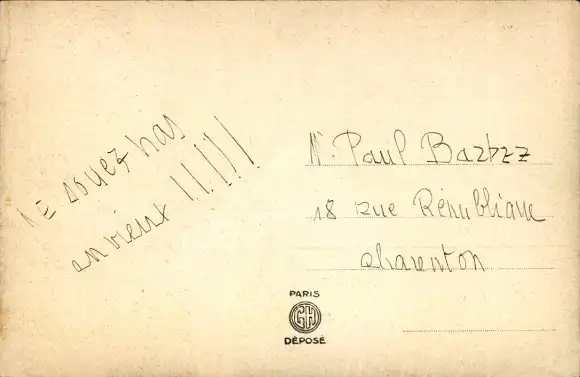 Ne soyez pas
en vieux !!!!!!
Mr. Paul Barbez
18 rue République
Charenton
PARIS
GH
DÉPOSÉ